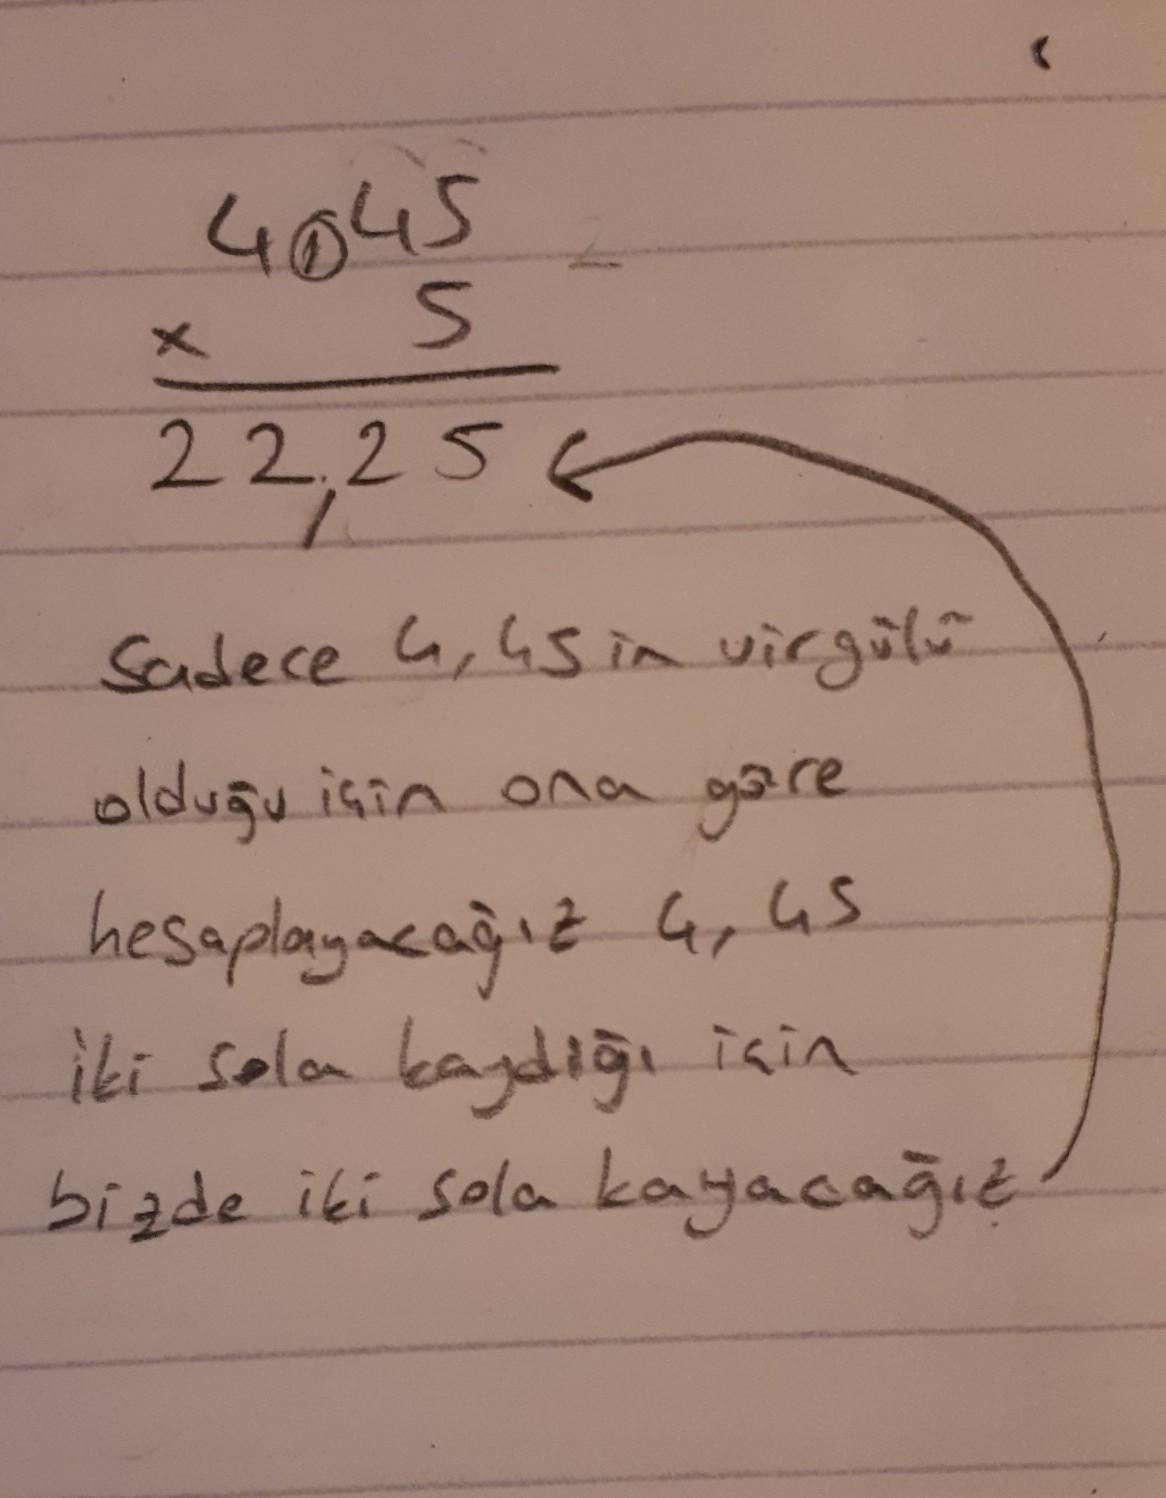 4,45
x 5
22,25
Sadece 4,45 in virgülü
olduğu için ona göre
hesaplayacağız 4,45
iki sola kaydığı için
bizde iki sola kayacağız